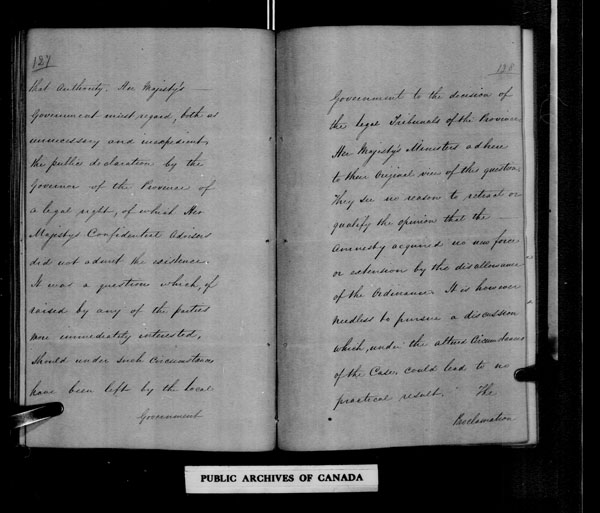 127
that Authority. Her Majesty's
Government must regard, both as
unnecessary and inexpedient,
the public declaration by the
Governor of the Province of
a legal right, of which Her
Majesty's Confidential Advisers
did not admit the existence.
It was a question which, if
raised by any of the parties
more immediately interested,
should under such circumstances
have been left by the Local
Government
128
Government to the decision of
the legal Tribunals of the Province.
Her Majesty's Ministers adhere
to their Original view of this question.
They see no reason to retract or
qualify the opinion that the
Amnesty acquired no new force
or extension by the disallowance
of the Ordinance. It is however
needless to pursue a discussion
which, under the altered Circumstances
of the Case, could lead to no
practical result. The
Proclamation
PUBLIC ARCHIVES OF CANADA